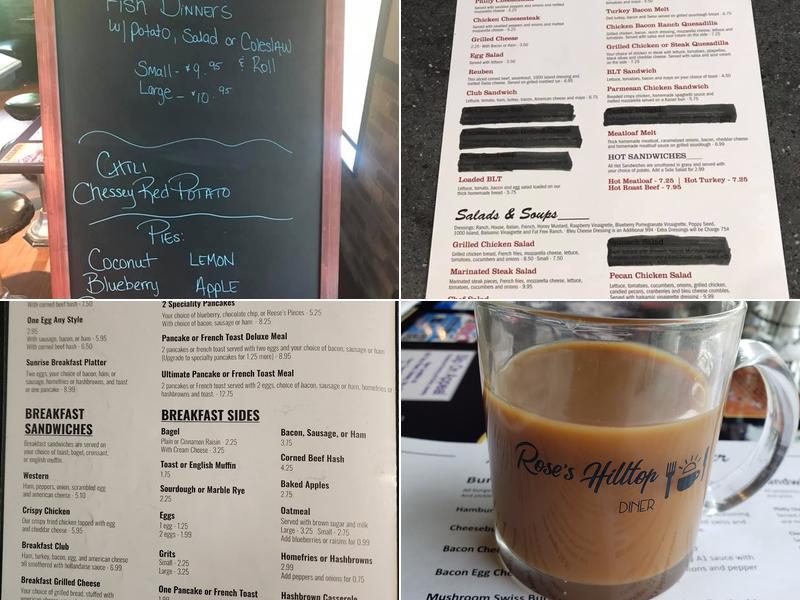 Fish Dinners
w/ Potato, Salad or Coleslaw
& Roll
Small - $9.95
Large - $10.95
Chili
Chessey Red Potato
Pies:
Coconut Lemon
Blueberry Apple
Chicken Cheesesteak
Grilled Cheese
2.25 · With Bacon or Ham · 3.50
Egg Salad
Served with lettuce · 3.50
Reuben
Club Sandwich
Lettuce, tomato, ham, turkey, bacon, American cheese and mayo · 6.75
Loaded BLT
Lettuce, tomato, bacon and egg salad loaded on our
thick homemade bread · 5.75
Turkey Bacon Melt
Chicken Bacon Ranch Quesadilla
Grilled Chicken or Steak Quesadilla
BLT Sandwich
Lettuce, tomatoes, bacon and mayo on your choice of toast · 4.50
Parmesan Chicken Sandwich
Breaded crispy chicken, homemade spaghetti sauce and
melted mozzarella served on a Kaiser bun · 5.75
Meatloaf Melt
Thick homemade meatloaf, caramelized onions, bacon, cheddar cheese
and homemade meatloaf sauce on grilled sourdough · 6.99
HOT SANDWICHES
All Hot Sandwiches are smothered in gravy and served with
your choice of potato. Add a Side Salad for 2.99
Hot Meatloaf - 7.25 | Hot Turkey - 7.25
Hot Roast Beef - 7.95
Salads & Soups
Dressings: Ranch, House, Italian, French, Honey Mustard, Raspberry Vinaigrette, Blueberry Pomegranate Vinaigrette, Poppy Seed,
1000 Island, Balsamic Vinaigrette and Fat Free Ranch · Bleu Cheese Dressing is an Additional 99¢ · Extra Dressings will be Charge 75¢
Grilled Chicken Salad
Grilled chicken breast, French fries, mozzarella cheese, lettuce,
tomatoes, cucumbers and onions · 8.50 · Small · 7.50
Marinated Steak Salad
Marinated steak pieces, French fries, mozzarella cheese, lettuce,
tomatoes, cucumbers and onions · 9.95
Chef Salad
Pecan Chicken Salad
Lettuce, tomatoes, cucumbers, onions, grilled chicken,
candied pecans, cranberries and bleu cheese crumbles.
Served with balsamic vinaigrette dressing · 9.99
With corned beef hash - 7.50
One Egg Any Style
2.95
With sausage, bacon, or ham - 5.95
With corned beef hash - 6.50
Sunrise Breakfast Platter
Two eggs, your choice of bacon, ham, or
sausage, homefries or hashbrowns, and toast
or one pancake - 8.99
BREAKFAST
SANDWICHES
Breakfast sandwiches are served on
your choice of toast, bagel, croissant,
or english muffin.
Western
Ham, peppers, onion, scrambled egg
and american cheese - 5.10
Crispy Chicken
Our crispy fried chicken topped with egg
and cheddar cheese - 5.95
Breakfast Club
Ham, turkey, bacon, egg, and american cheese
all smothered with hollandaise sauce - 6.99
Breakfast Grilled Cheese
Your choice of grilled bread, stuffed with
2 Speciality Pancakes
Your choice of blueberry, chocolate chip, or Reese's Pieces - 5.25
With choice of bacon, sausage or ham - 8.25
Pancake or French Toast Deluxe Meal
2 pancakes or french toast served with two eggs and your choice of bacon, sausage or ham
(Upgrade to specialty pancakes for 1.25 more) - 8.95
Ultimate Pancake or French Toast Meal
2 pancakes or French toast served with 2 eggs, choice of bacon, sausage or ham, homefries or
hashbrowns and toast. - 12.75
BREAKFAST SIDES
Bagel
Plain or Cinnamon Raisin · 2.25
With Cream Cheese - 3.25
Toast or English Muffin
1.75
Sourdough or Marble Rye
2.25
Eggs
1 egg - 1.25
2 eggs - 1.99
Grits
Small - 2.25
Large - 3.25
One Pancake or French Toast
Bacon, Sausage, or Ham
3.75
Corned Beef Hash
4.25
Baked Apples
2.75
Oatmeal
Served with brown sugar and milk
Large - 3.25 Small - 2.75
Add blueberries or raisins for 0.99
Homefries or Hashbrowns
2.99
Add peppers and onions for 0.75
Hashbrown Casserole
Rose's Hilltop
DINER
Bacon Egg
Mushroom Swiss
A1 sauce with
onions and pepper